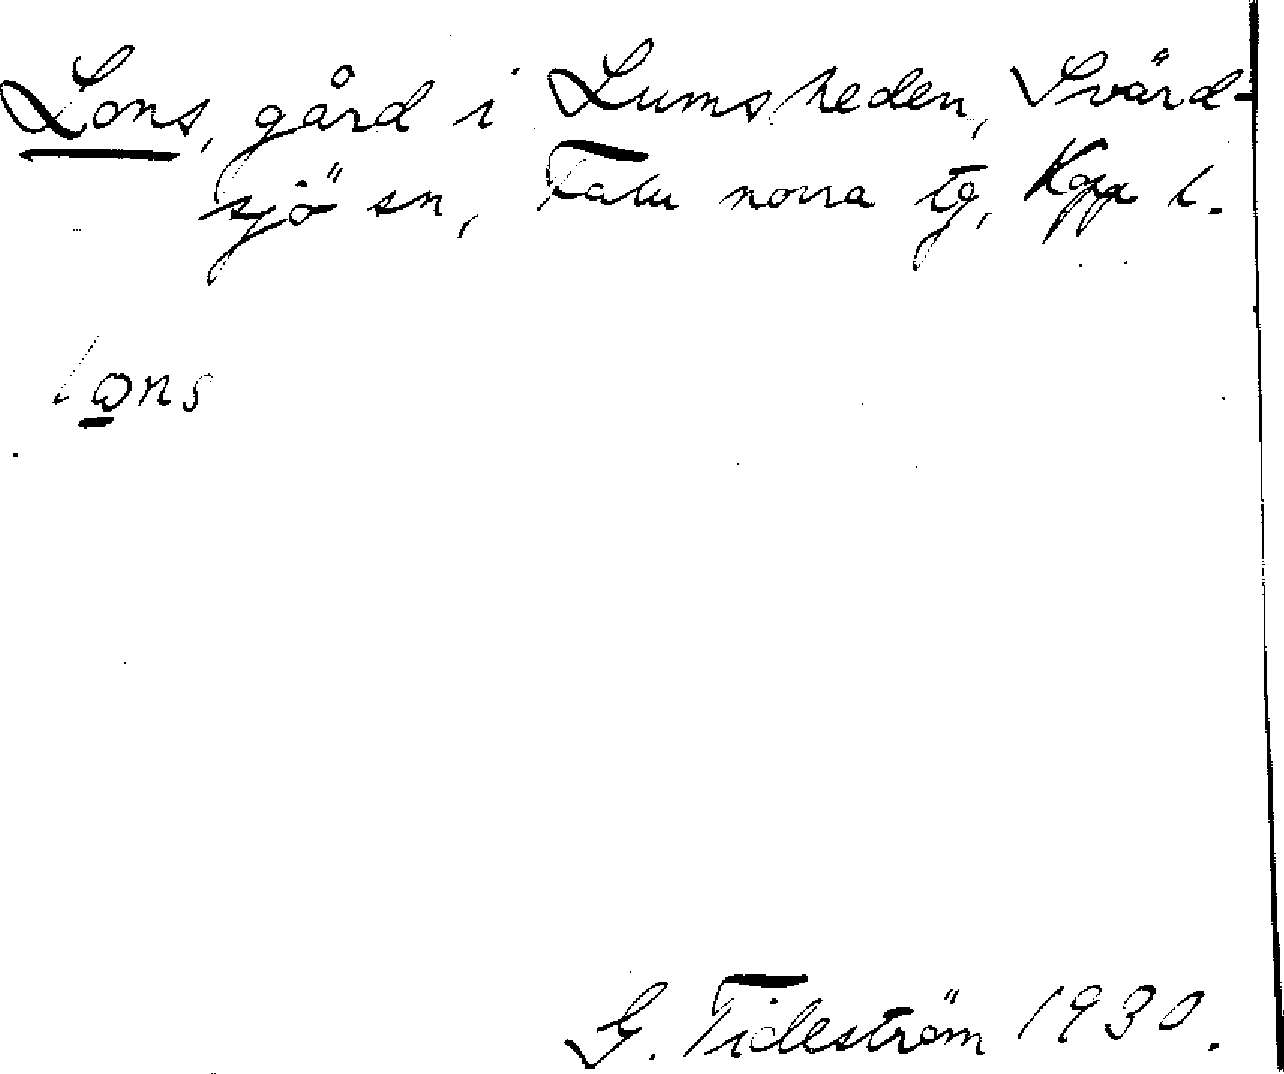 Lons, gård i Lumsheden, Svärd-
sjö sn, Falu norra tg, Kopp l.
lons
G. Tideström 1930.